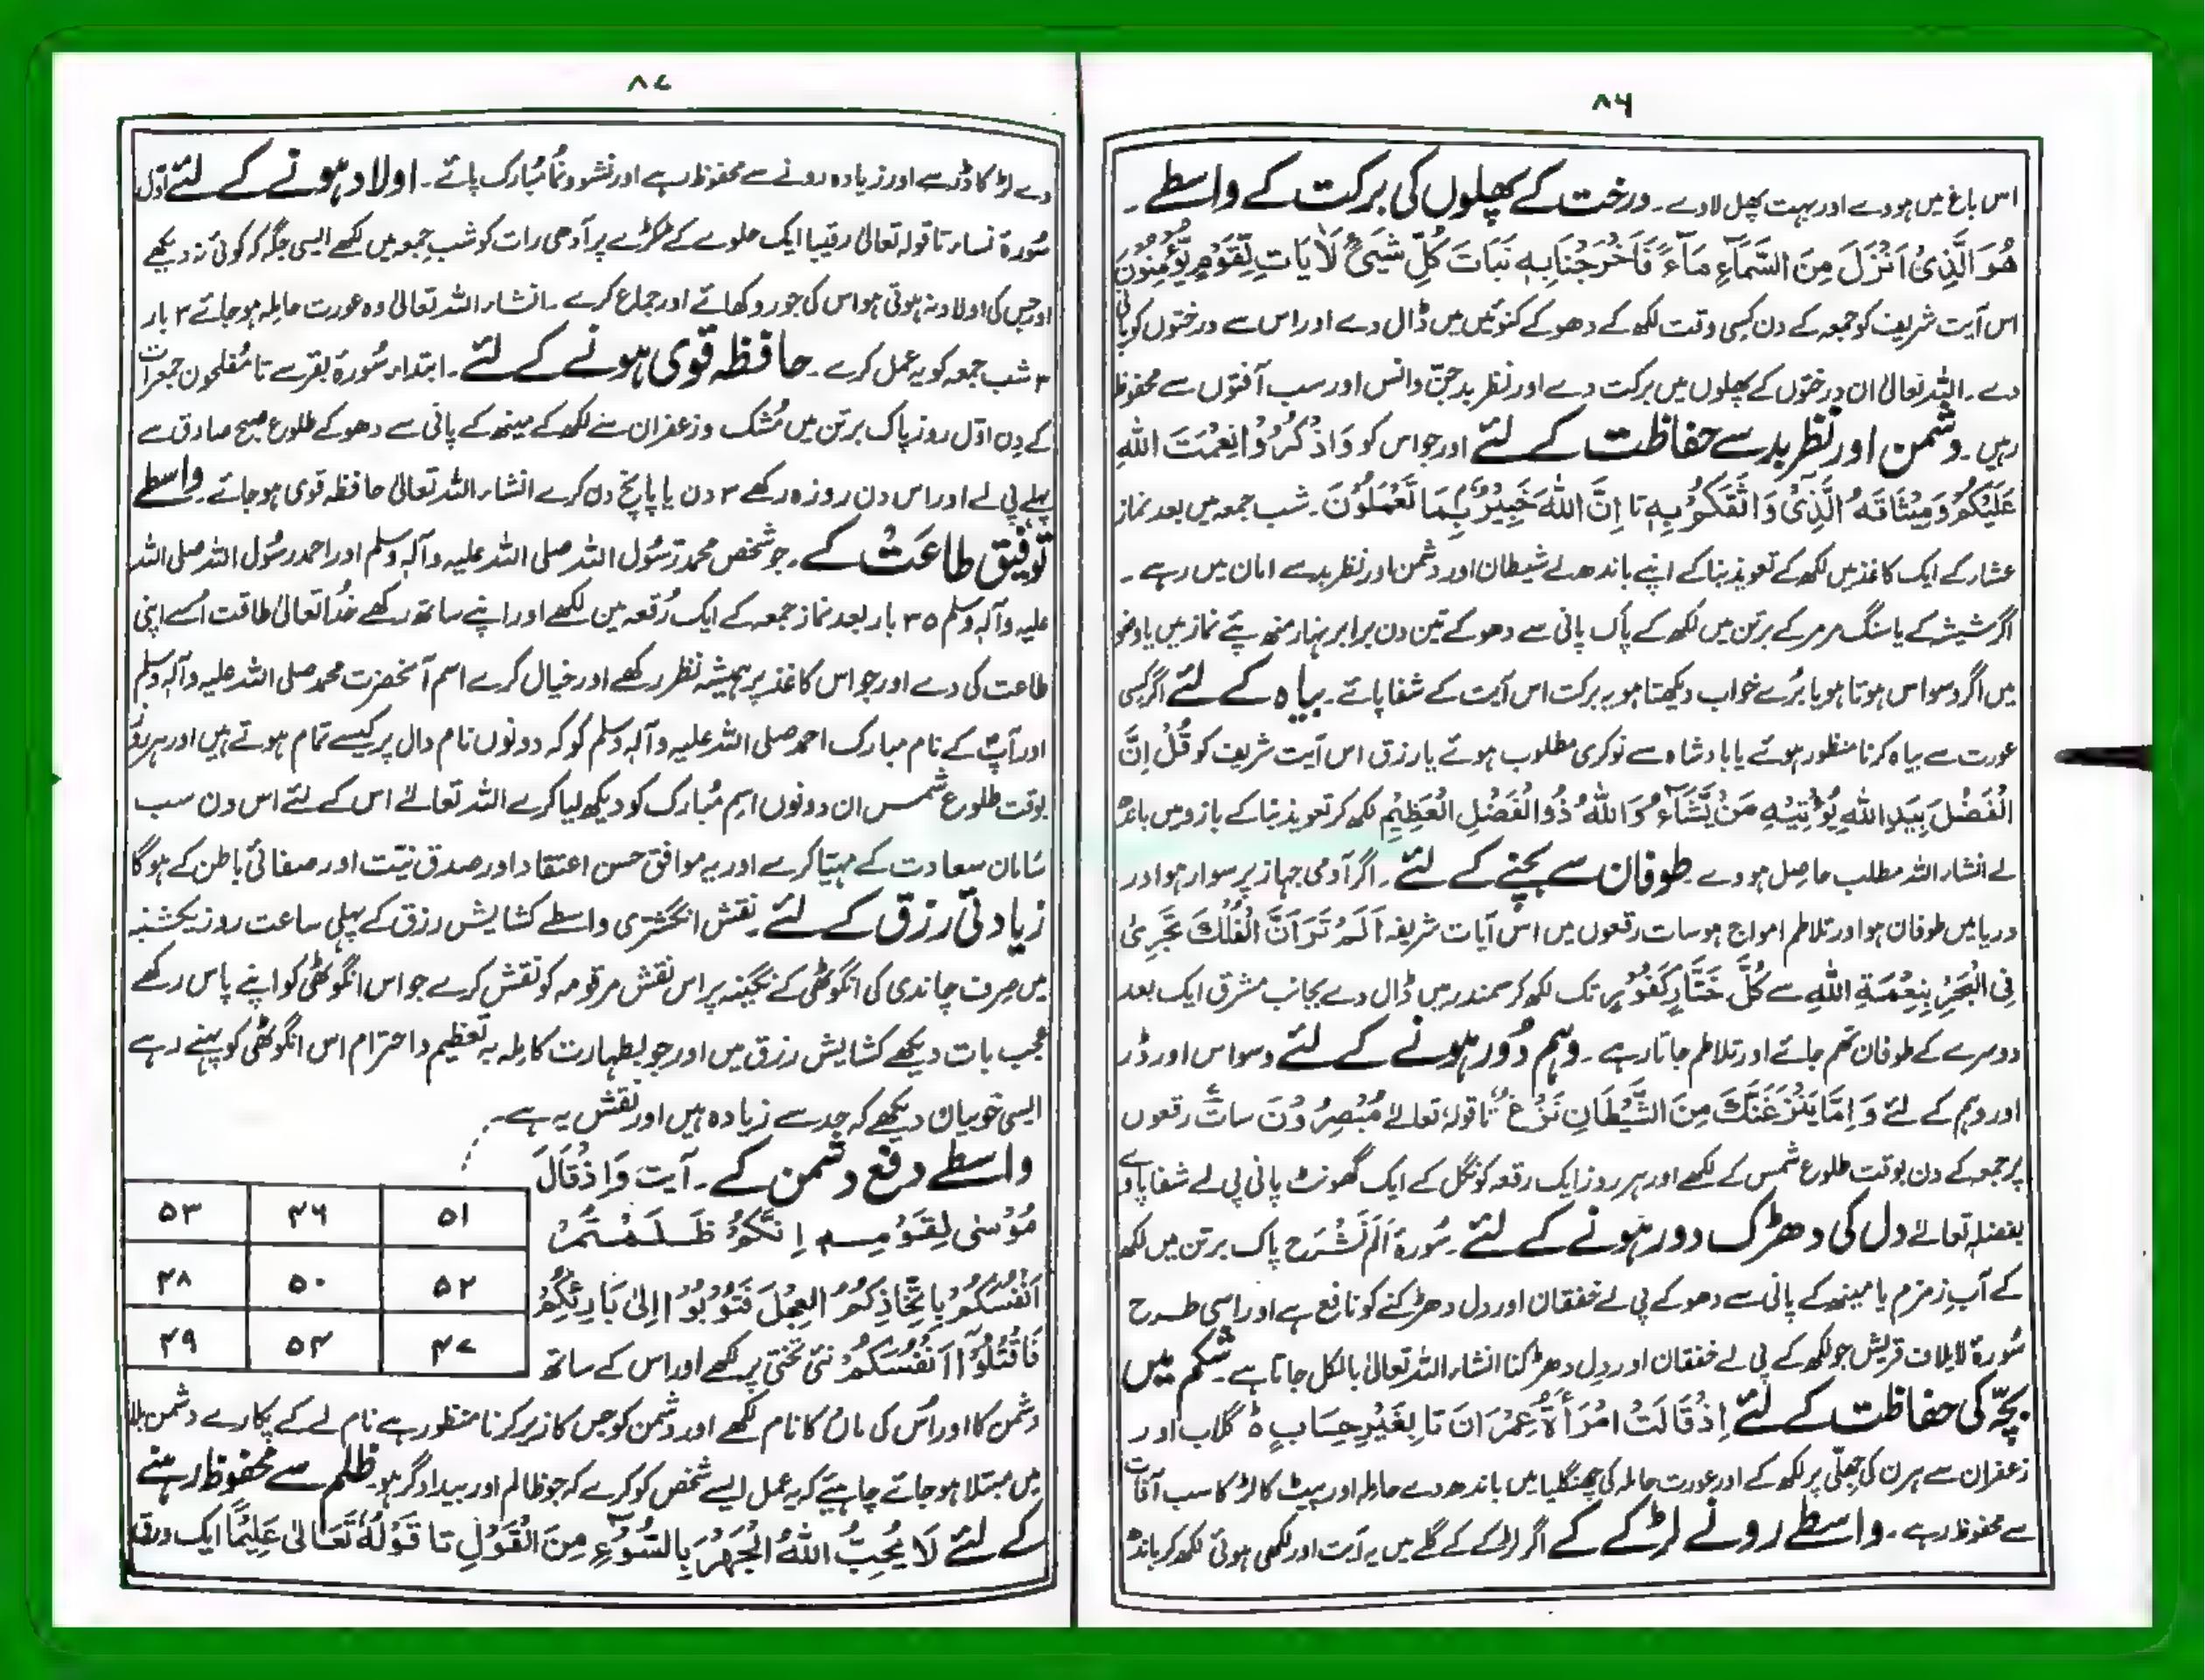 ۸۶
اس باغ میں ہووے اور بہت پھل لاوے۔ درخت کے پھلوں کی برکت کے واسطے۔
هُوَ الَّذِیْ اَنْزَلَ مِنَ السَّمَآءِ مَآءً فَاَخْرَجْنَا بِہٖ نَبَاتَ کُلِّ شَیْءٍ لَاٰیَاتٍ لِّقَوْمٍ یُّؤْمِنُوْنَ
اس آیت شریف کو جمعہ کے دن کسی وقت لکھ کے دھو کے کنوئیں میں ڈال دے اور اس سے درختوں کو پانی
دے۔ اللہ تعالیٰ ان درختوں کے پھلوں میں برکت دے اور نظر بد جن وانس اور سب آفتوں سے محفوظ
رہیں۔ دشمن اور نظر بد سے حفاظت کے لئے اور جو اس کو وَاذْکُرُوْا نِعْمَتَ اللہِ
عَلَیْکُمْ وَمِیْثَاقَہُ الَّذِیْ وَاثَقَکُمْ بِہٖ تا اِنَّ اللہَ خَبِیْرٌۢ بِمَا تَعْمَلُوْنَ۔ شب جمعہ میں بعد نماز
عشار کے ایک کاغذ میں لکھ کے تعویذ بنا کے اپنے باندھ لے شیطان اور دشمن اور نظر بد سے امان میں رہے۔
اگر شیشہ کے یا سنگ مرمر کے برتن میں لکھ کے پاک پانی سے دھو کے تین دن برابر نہار منھ پئے نماز میں یا وضو
میں اگر وسواس ہوتا ہو یا بُرے خواب دیکھتا ہو بہ برکت اس آیت کے شفا پائے۔ بیاہ کے لئے اگر کسی
عورت سے بیاہ کرنا منظور ہوئے یا بادشاہ سے نوکری مطلوب ہوئے یا رزق اس آیت شریف کو قُلْ اِنَّ
الْفَضْلَ بِیَدِ اللہِ یُؤْتِیْہِ مَنْ یَّشَآءُ وَاللہُ ذُوالْفَضْلِ الْعَظِیْمِ لکھ کر تعویذ بنا کے بازو میں باندھ
لے انشاء اللہ مطلب حاصل ہووے۔ طوفان سے بچنے کے لئے۔ اگر آدمی جہاز پر سوار ہو اور
دریا میں طوفان ہو اور تلاطم امواج ہو سات رقعوں میں اس آیات شریفہ اَلَمْ تَرَ اَنَّ الْفُلْکَ تَجْرِیْ
فِی الْبَحْرِ بِنِعْمَۃِ اللہِ سے کُلِّ خَتَّارٍ کَفُوْرٍ تک لکھ کر سمندر میں ڈال دے بجانب مشرق ایک بعد
دوسرے کے طوفان تھم جائے اور تلاطم جاتا رہے۔ وہم دُور ہونے کے لئے وسواس اور ڈر
اور وہم کے لئے وَ اِمَّا یَنْزَغَنَّکَ مِنَ الشَّیْطَانِ نَزْغٌ تا قولہ تعالےٰ مُبْصِرُوْنَ سات رقعوں
پر جمعہ کے دن بوقت طلوع شمس کے لکھے اور ہر روز ایک رقعہ کو نگل کے ایک گھونٹ پانی پی لے شفا پاوے
بفضلہ تعالےٰ دل کی دھڑک دور ہونے کے لئے۔ سُورۃ اَلَمْ نَشْرَح پاک برتن میں لکھ
کے آبِ زمزم یا مینھ کے پانی سے دھو کے پی لے خفقان اور دل دھڑکنے کو نافع ہے اور اسی طرح
سُورۃ لایلاف قریش جو لکھ کے پی لے خفقان اور دِل دھڑکنا انشاء اللہ تعالیٰ بالکل جاتا ہے۔ شکم میں
بچّہ کی حفاظت کے لئے اِذْ قَالَتْ امْرَأَۃُ عِمْرَانَ تا بِغَیْرِ حِسَابٍ ہ گلاب اور
زعفران سے ہرن کی جھلّی پر لکھ کے اور عورت حاملہ کی چھنگلیا میں باندھ دے حاملہ اور پیٹ کا لڑکا سب آفات
سے محفوظ رہے۔ واسطے رونے لڑکے کے اگر لڑکے کے گلے میں یہ آیت اور لکھی ہوئی لکھ کر باندھ
۸۷
دے لڑکا ڈر سے اور زیادہ رونے سے محفوظ رہے اور نشو ونما مُبارک پائے۔ اولاد ہونے کے لئے اوّل
سُورۃ نساء تا قولہ تعالیٰ رقیبا ایک حلوے کے ٹکڑے پر آدھی رات کو شب جمعہ میں لکھے ایسی جگہ کہ کوئی نہ دیکھے
اور جس کی اولاد نہ ہوتی ہو اس کی جورو کھائے اور جماع کرے۔ انشاء اللہ تعالیٰ وہ عورت حاملہ ہو جائے ۳ بار
۳ شب جمعہ کو یہ عمل کرے۔ حافظہ قوی ہونے کے لئے۔ ابتداء سُورۃ بقر سے تا مُفلحون جمعرات
کے دِن اوّل روز پاک برتن میں مُشک وزعفران سے لکھ کے مینھ کے پانی سے دھو کے طلوع صبح صادق سے
پہلے پی لے اور اس دن روزہ رکھے ۳ دن یا پانچ دن کرے انشاء اللہ تعالیٰ حافظہ قوی ہو جائے۔ واسطے
توفیق طاعت کے۔ جو شخص محمد رّسُول اللہ صلی اللہ علیہ وآلہ وسلم اور احمد رسُول اللہ صلی اللہ
علیہ وآلہ وسلم ۳۵ بار بعد نماز جمعہ کے ایک رُقعہ مین لکھے اور اپنے ساتھ رکھے خُدا تعالیٰ طاقت اُسے اپنی
طاعت کی دے اور جو اس کاغذ پر ہمیشہ نظر رکھے اور خیال کرے اسم آنحضرت محمد صلی اللہ علیہ وآلہ وسلم
اور آپؐ کے نام مبارک احمد صلی اللہ علیہ وآلہ وسلم کو کہ دونوں نام دال پر کیسے تمام ہوتے ہیں اور ہر روز
بوقت طلوع شمس ان دونوں اسم مُبارک کو دیکھ لیا کرے اللہ تعالےٰ اس کے لئے اس دن سب
سامان سعادت کے مہیّا کرے اور یہ موافق حسن اعتقاد اور صدق نیّت اور صفائی باطن کے ہو گا
زیادتی رزق کے لئے۔ نقش انگشتری واسطے کشایش رزق کے پہلی ساعت روز یکشنبہ
میں صِرف چاندی کی انگوٹھی کے نگینہ پر اس نقش مرقومہ کو نقش کرے جو اس انگوٹھی کو اپنے پاس رکھے
عجب بات دیکھے کشایش رزق میں اور جو بطہارت کاملہ بہ تعظیم واحترام اس انگوٹھی کو پہنے رہے
ایسی خوبیان دیکھے کہ حد سے زیادہ ہیں اور نقش یہ ہے۔
۵۱ ۴۶ ۵۳
۵۲ ۵۰ ۴۸
۴۷ ۵۴ ۴۹
واسطے دفع دشمن کے۔ آیت وَاِذْ قَالَ
مُوْسٰی لِقَوْمِہٖ اِنَّکُمْ ظَلَمْتُمْ
اَنْفُسَکُمْ بِاتِّخَاذِکُمُ الْعِجْلَ فَتُوْبُوْا اِلٰی بَارِئِکُمْ
فَاقْتُلُوْا اَنْفُسَکُمْ نئی تختی پر لکھے اور اس کے ساتھ
دشمن کا اور اُس کی ماں کا نام لکھے اور دشمن کو جس کا زیر کرنا منظور ہے نام لے کے پکارے دشمن بلا
میں مبتلا ہو جائے چاہیئے کہ یہ عمل ایسے شخص کو کرے کہ جو ظالم اور بیدادگر ہو۔ ظلم سے محفوظ رہنے
کے لئے لَا یُحِبُّ اللہُ الْجَهْرَ بِالسُّوْٓءِ مِنَ الْقَوْلِ تا قَوْلُہٗ تَعَالٰی عَلِیْمًا ایک ورق